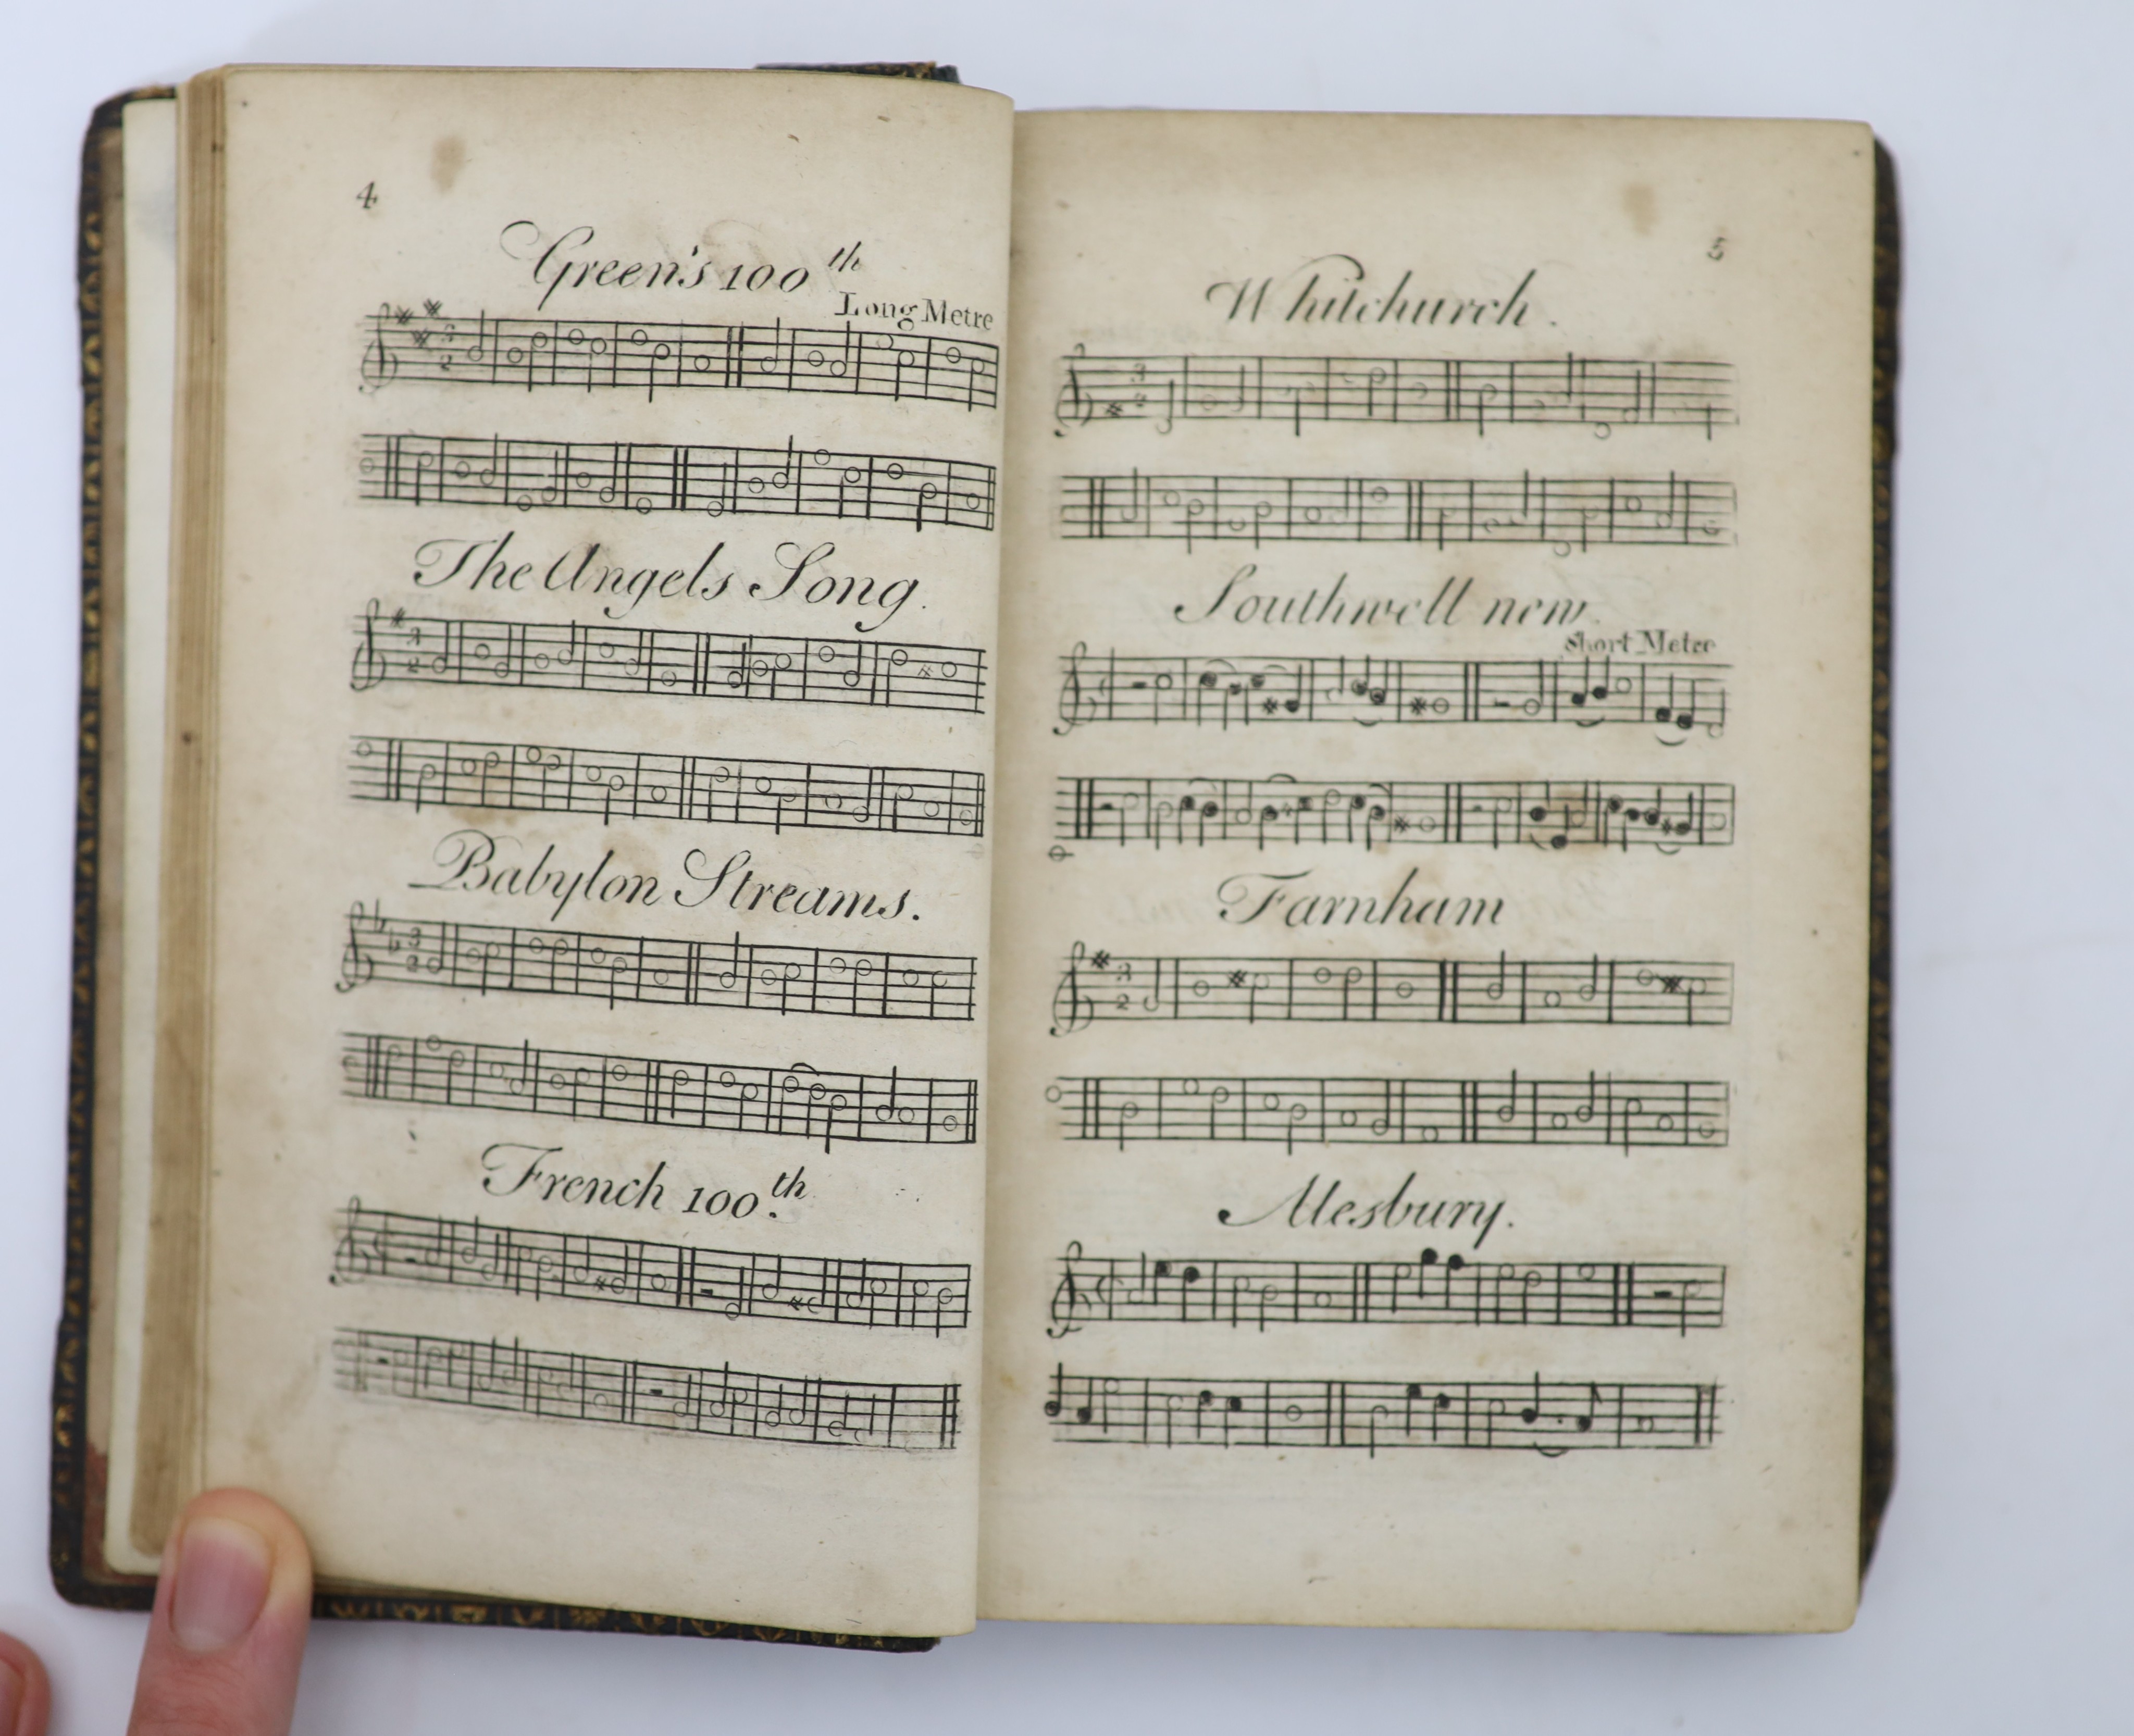 4
Green's 100th
Long Metre
3
2
The Angels Song.
3
2
Babylon Streams.
3
2
French 100.th
5
Whitchurch.
3
2
Southwell new.
Short Metre
Farnham
3
2
Alesbury.